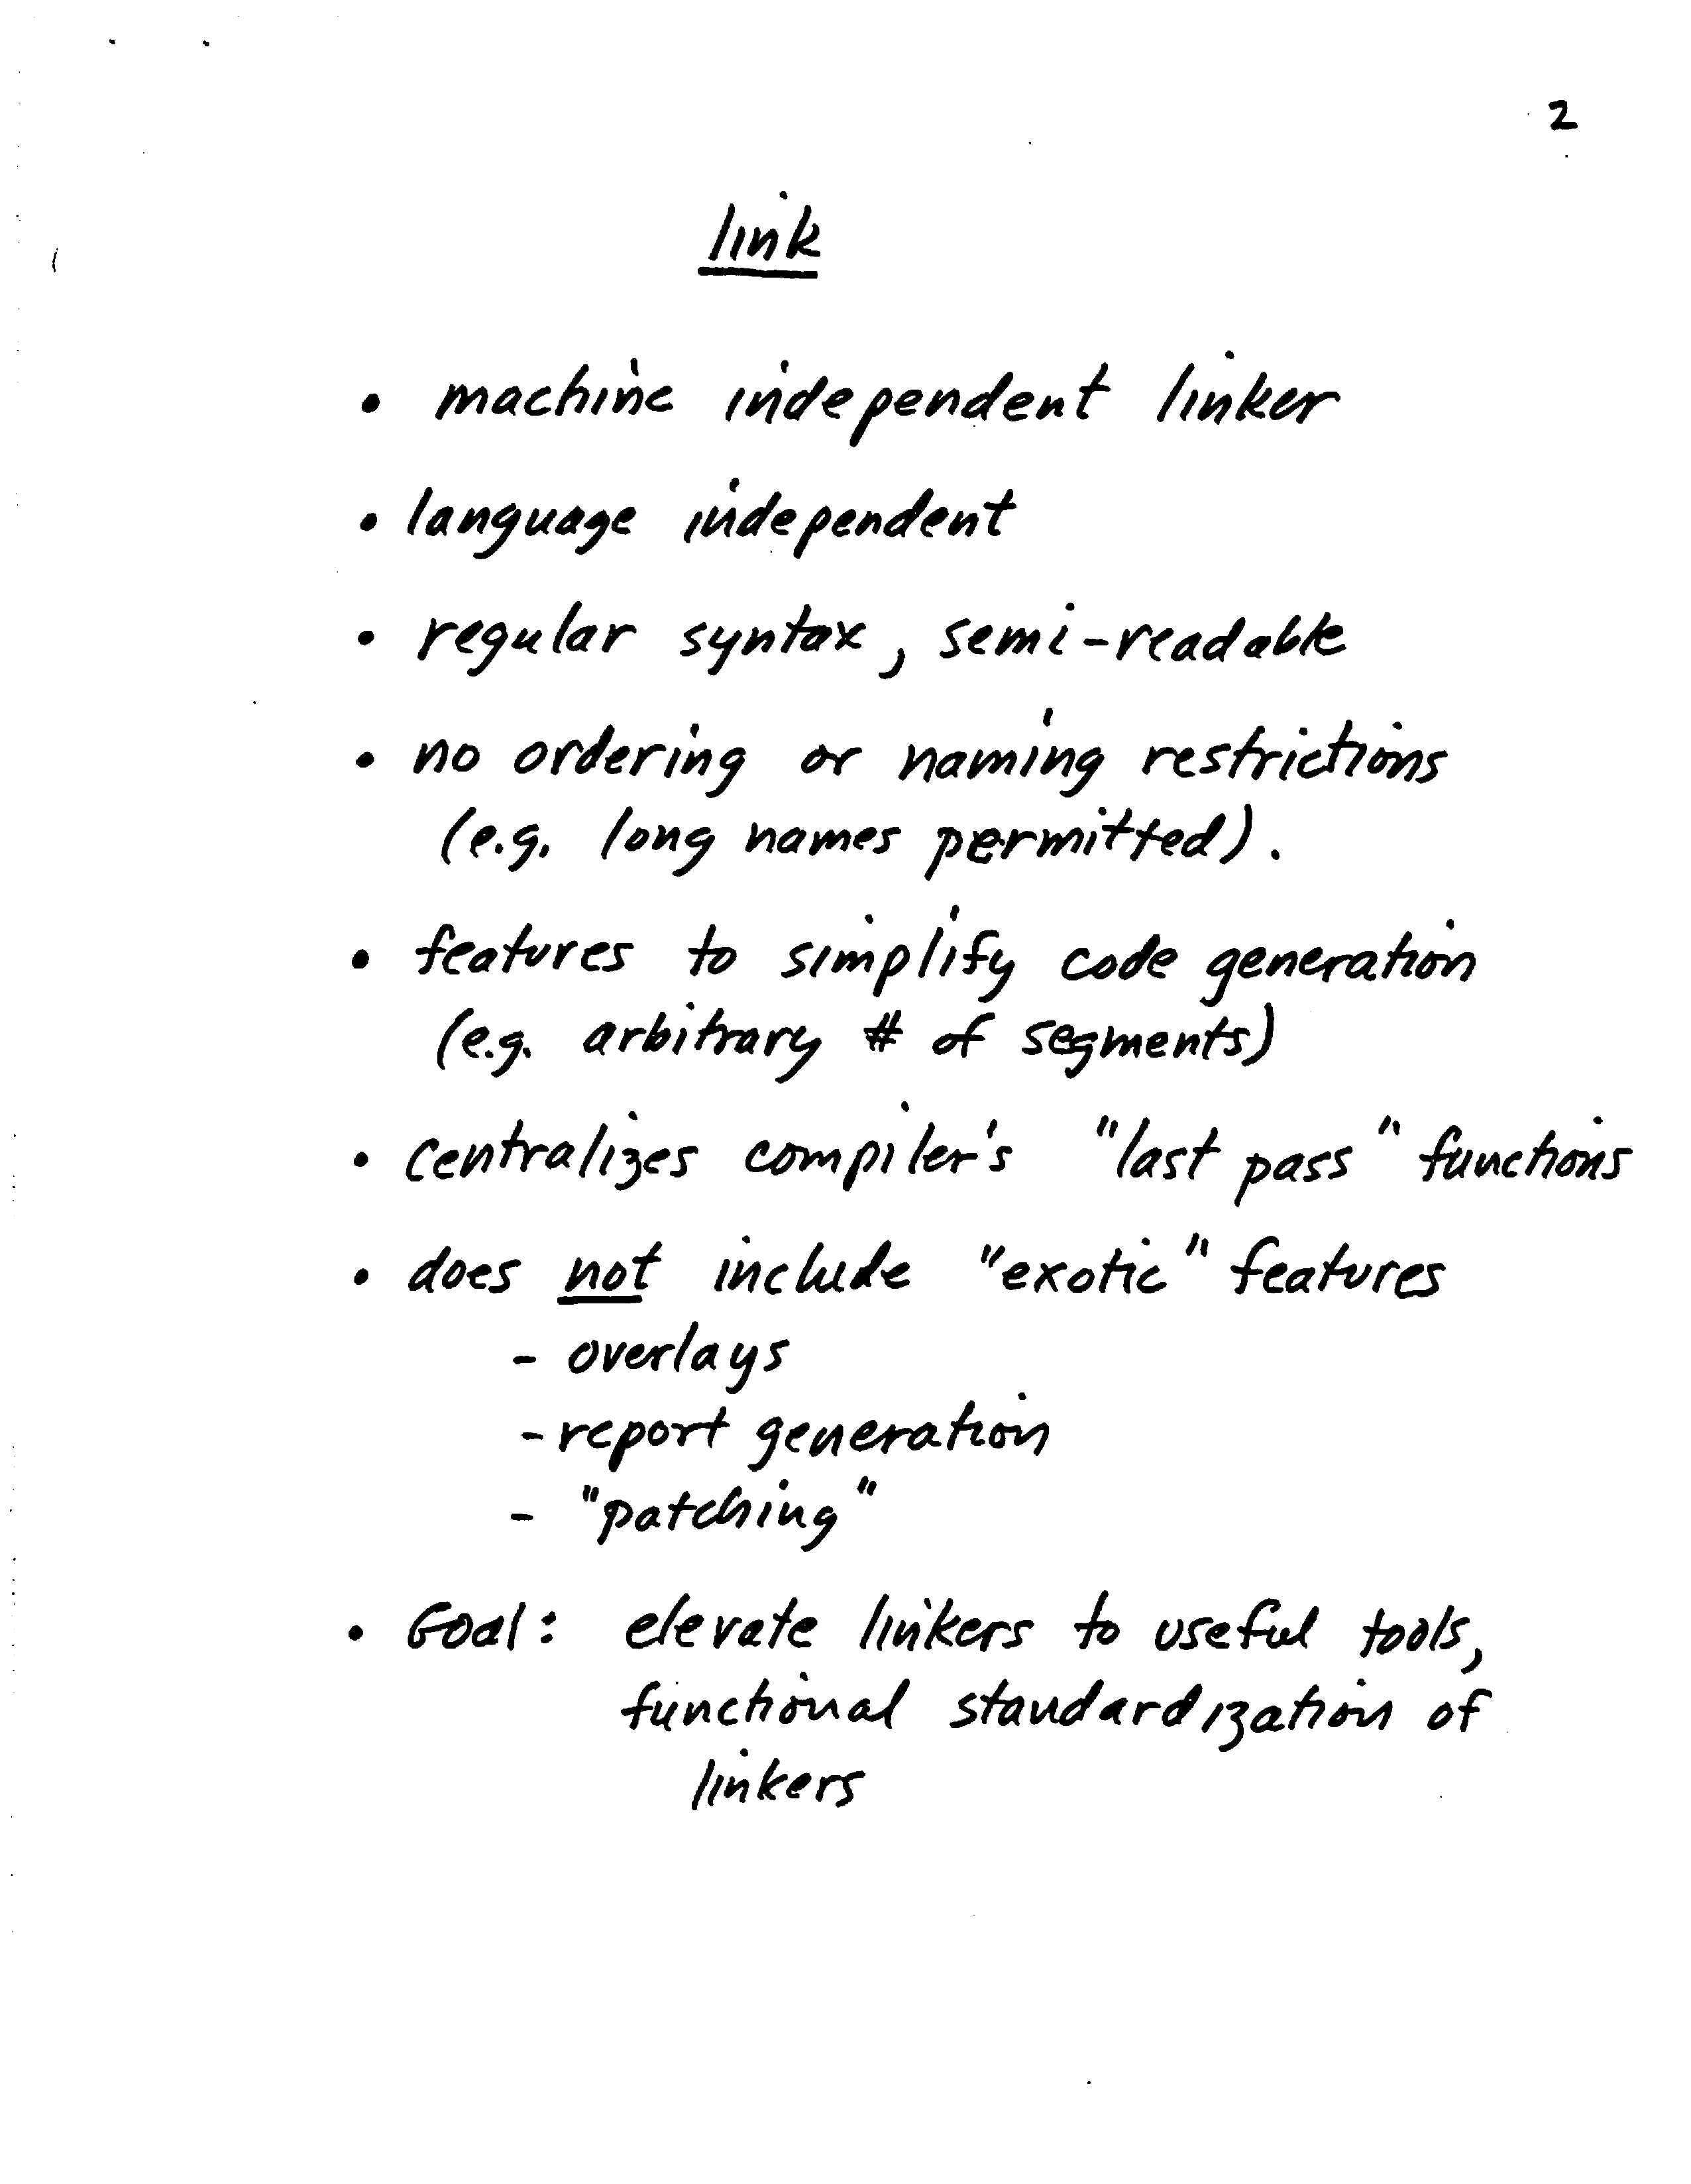 2
link
• machine independent linker
• language independent
• regular syntax, semi-readable
• no ordering or naming restrictions
(e.g. long names permitted).
• features to simplify code generation
(e.g. arbitrary # of segments)
• centralizes compiler's "last pass" functions
• does not include "exotic" features
- overlays
- report generation
- "patching"
• Goal: elevate linkers to useful tools,
functional standardization of
linkers